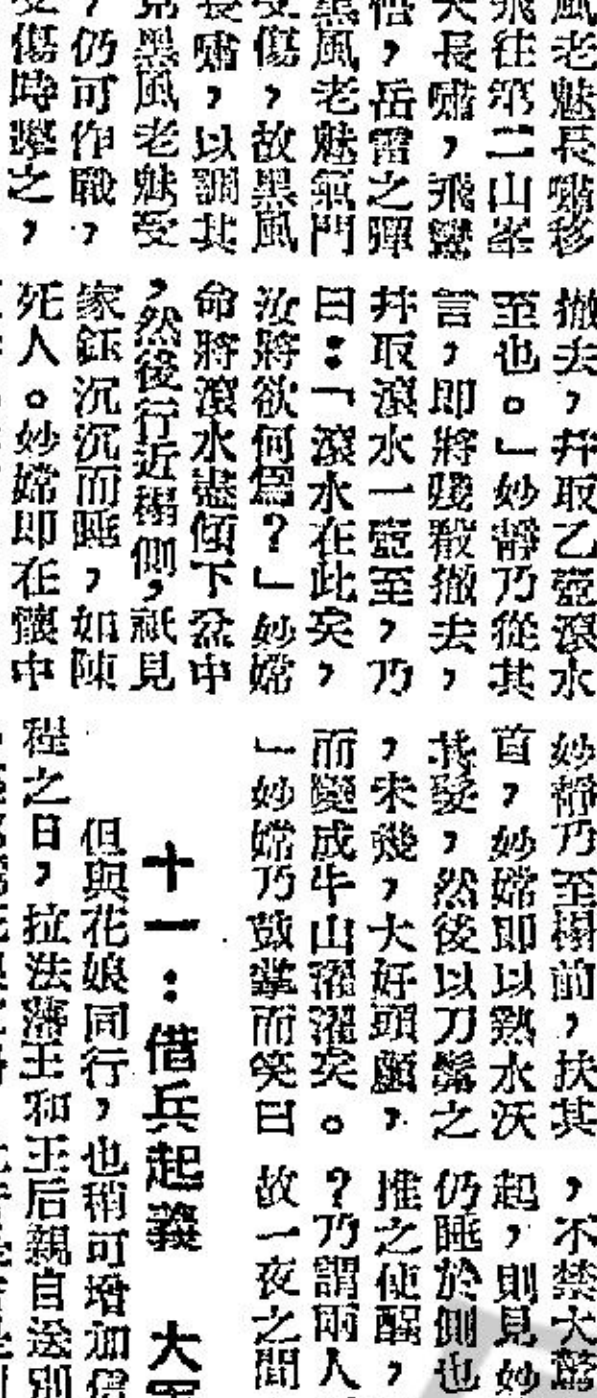 風老魅長嘯移
飛往第二山峯
大長嘯，飛鸞
悟，岳雷之彈
黑風老魅氣門
受傷，故黑風
長嘯，以調其
見黑風老魅受
，仍可作戰，
受傷時擊之，
撤去，幷取乙壺滾水
至也。」妙靜乃從其
言，即將殘殽撤去，
幷取滾水一壺至，乃
曰：「滾水在此矣，
汝將欲何爲？」妙嫦
命將滾水盡傾下盆中
，然後行近榻側，祇見
家鈺沉沉而睡，如陳
死人。妙嫦即在懷中
妙靜乃至榻前，扶其
首，妙嫦即以熱水沃
其髮，然後以刀鬀之
，未幾，大好頭顱，
而變成牛山濯濯矣。
」妙嫦乃鼓掌而笑曰
，不禁大驚
起，則見妙
仍睡於側也
推之使醒，
？乃謂兩人
故一夜之間
十一：借兵起義 大
但與花娘同行，也稍可增加
程之日，拉法藩王和王后親自送別